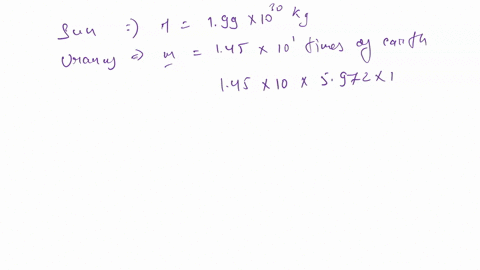 Sun => M = 1.99 × 10^30 kg
Uranus => m = 1.45 × 10^1 times of earth
1.45 × 10 × 5.972 × 1